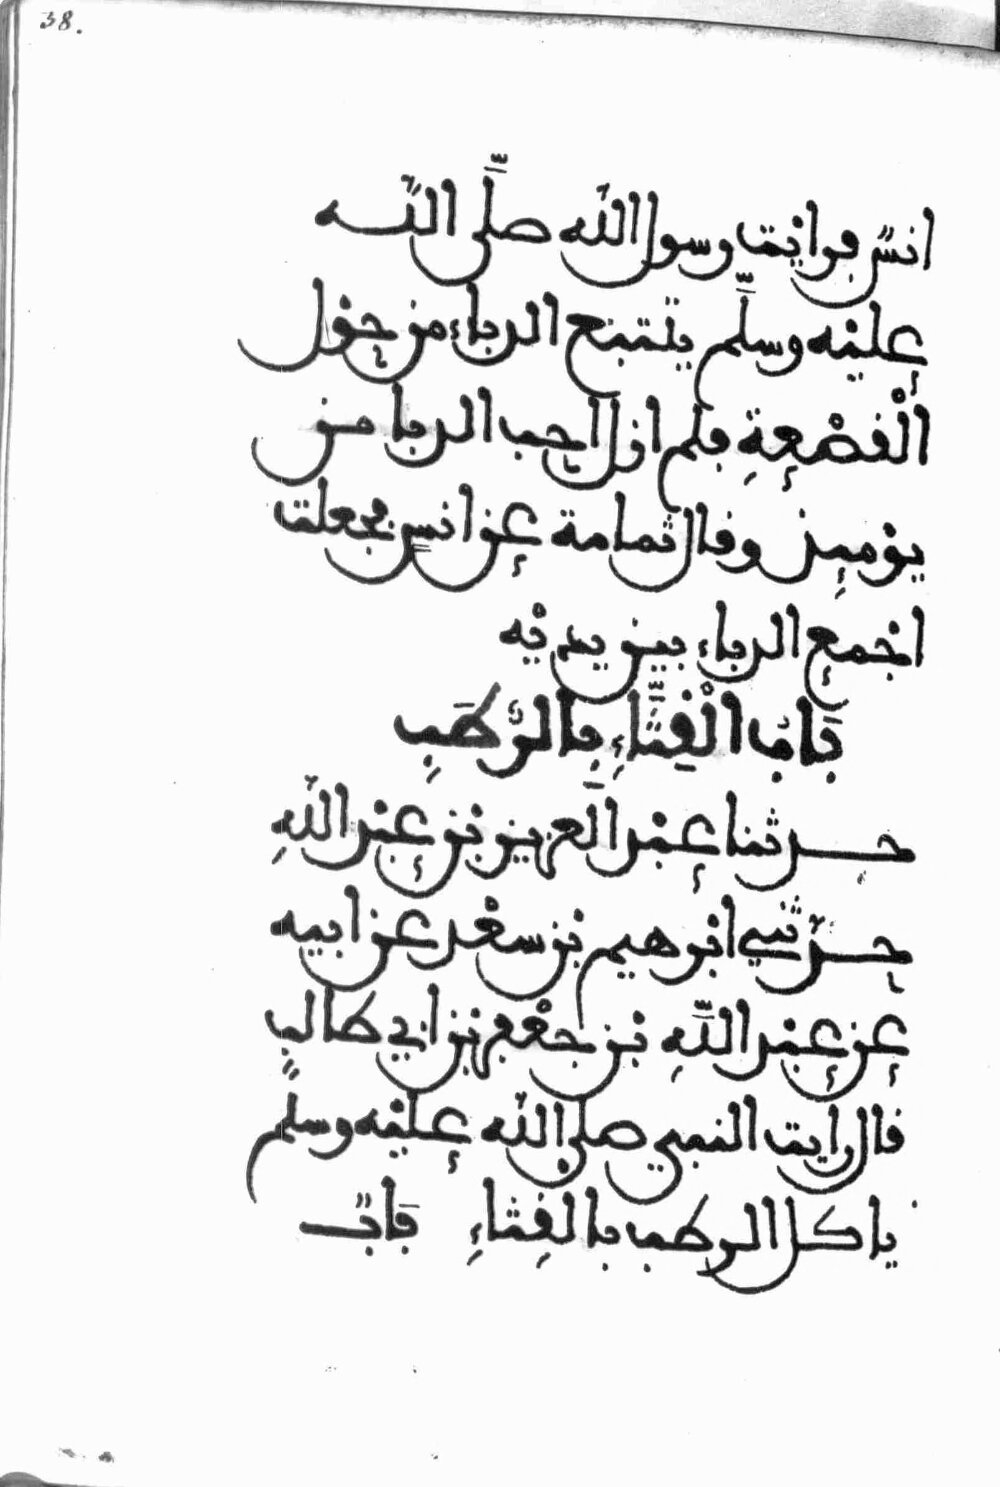 38.
انسٌ فرايْت رسول اللّه صلَّى اللّه
عليْه وسلَّم يتتبع الدباء من حوْل
الْقصْعةِ فلم ازل احب الدبا من
يوْميِذ وقال ثمامة عن انسٍ فجعلت
اجْمع الدباء بين يديْه
بَاب الْقِثَّاءِ بِالرُّطَبِ
حدثنا عبْد الْعزيز بْن عبْد اللّهِ
حدّثني ابْرهيم بْن سعْد عن ابيه
عن عبْد اللَّهِ بْن جعْفر بْن ابي طالب
قال رايت النبي صلى اللّه عليْه وسلَّم
ياكل الرطب بالقِثاءِ بَابٌ